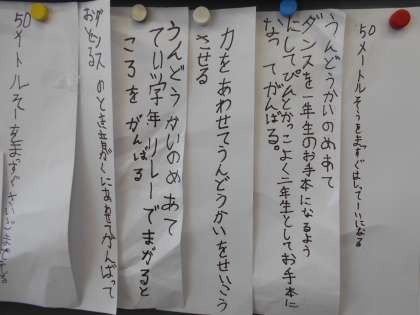 50メートルそうをまっすぐはしって一いになる
うんどうかいのめあて
ダンスを一年生のお手本になるよう
にしてぴんとかっこよく二年生としてお手本に
なってがんばる。
力をあわせてうんどうかいをせいこう
させる
うんどうかいのめあて
ていがく年リレーでまがると
ころをがんばる
ダンスのときを音がくにあわせてがんばって
おどる
50メートルそーをまっすぐさいごまで